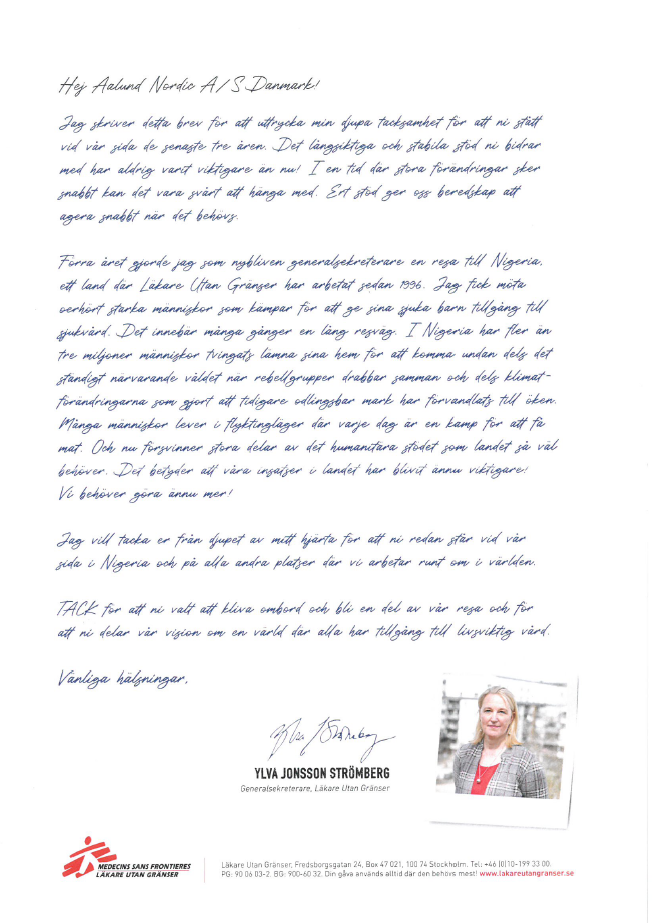 Hej Aalund Nordic A/S Danmark!
Jag skriver detta brev för att uttrycka min djupa tacksamhet för att ni stått
vid vår sida de senaste tre åren. Det långsiktiga och stabila stöd ni bidrar
med har aldrig varit viktigare än nu! I en tid där stora förändringar sker
snabbt kan det vara svårt att hänga med. Ert stöd ger oss beredskap att
agera snabbt när det behövs.
Förra året gjorde jag som nybliven generalsekreterare en resa till Nigeria,
ett land där Läkare Utan Gränser har arbetat sedan 1996. Jag fick möta
oerhört starka människor som kämpar för att ge sina sjuka barn tillgång till
sjukvård. Det innebär många gånger en lång resväg. I Nigeria har fler än
tre miljoner människor tvingats lämna sina hem för att komma undan dels det
ständigt närvarande våldet när rebellgrupper drabbar samman och dels klimat-
förändringarna som gjort att tidigare odlingsbar mark har förvandlats till öken.
Många människor lever i flyktingläger där varje dag är en kamp för att få
mat. Och nu försvinner stora delar av det humanitära stödet som landet så väl
behöver. Det betyder att våra insatser i landet har blivit ännu viktigare!
Vi behöver göra ännu mer!
Jag vill tacka er från djupet av mitt hjärta för att ni redan står vid vår
sida i Nigeria och på alla andra platser där vi arbetar runt om i världen.
TACK för att ni valt att kliva ombord och bli en del av vår resa och för
att ni delar vår vision om en värld där alla har tillgång till livsviktig vård.
Vänliga hälsningar,
YLVA JONSSON STRÖMBERG
Generalsekreterare, Läkare Utan Gränser
MEDECINS SANS FRONTIERES
LÄKARE UTAN GRÄNSER
Läkare Utan Gränser, Fredsborgsgatan 24, Box 47 021, 100 74 Stockholm. Tel: +46 (0)10-199 33 00.
PG: 90 06 03-2. BG: 900-60 32. Din gåva används alltid där den behövs mest! www.lakareutangranser.se